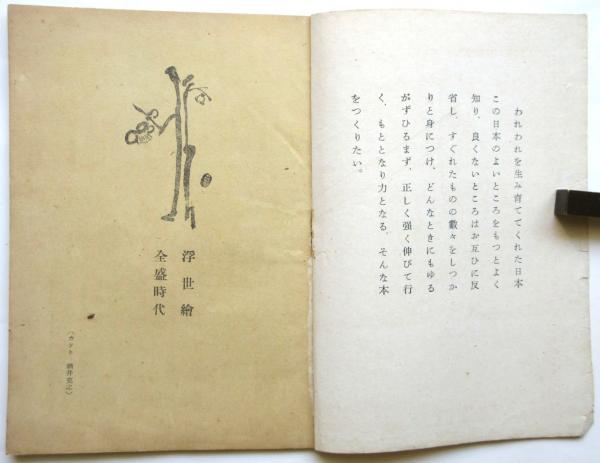 われわれを生み育ててくれた日本
この日本のよいところをもつとよく
知り、良くないところはお互ひに反
省し、すぐれたものの數々をしつか
りと身につけ、どんなときにもゆる
がずひるまず、正しく强く伸びて行
く、もととなり力となる、そんな本
をつくりたい。
浮世繪
全盛時代
(カット